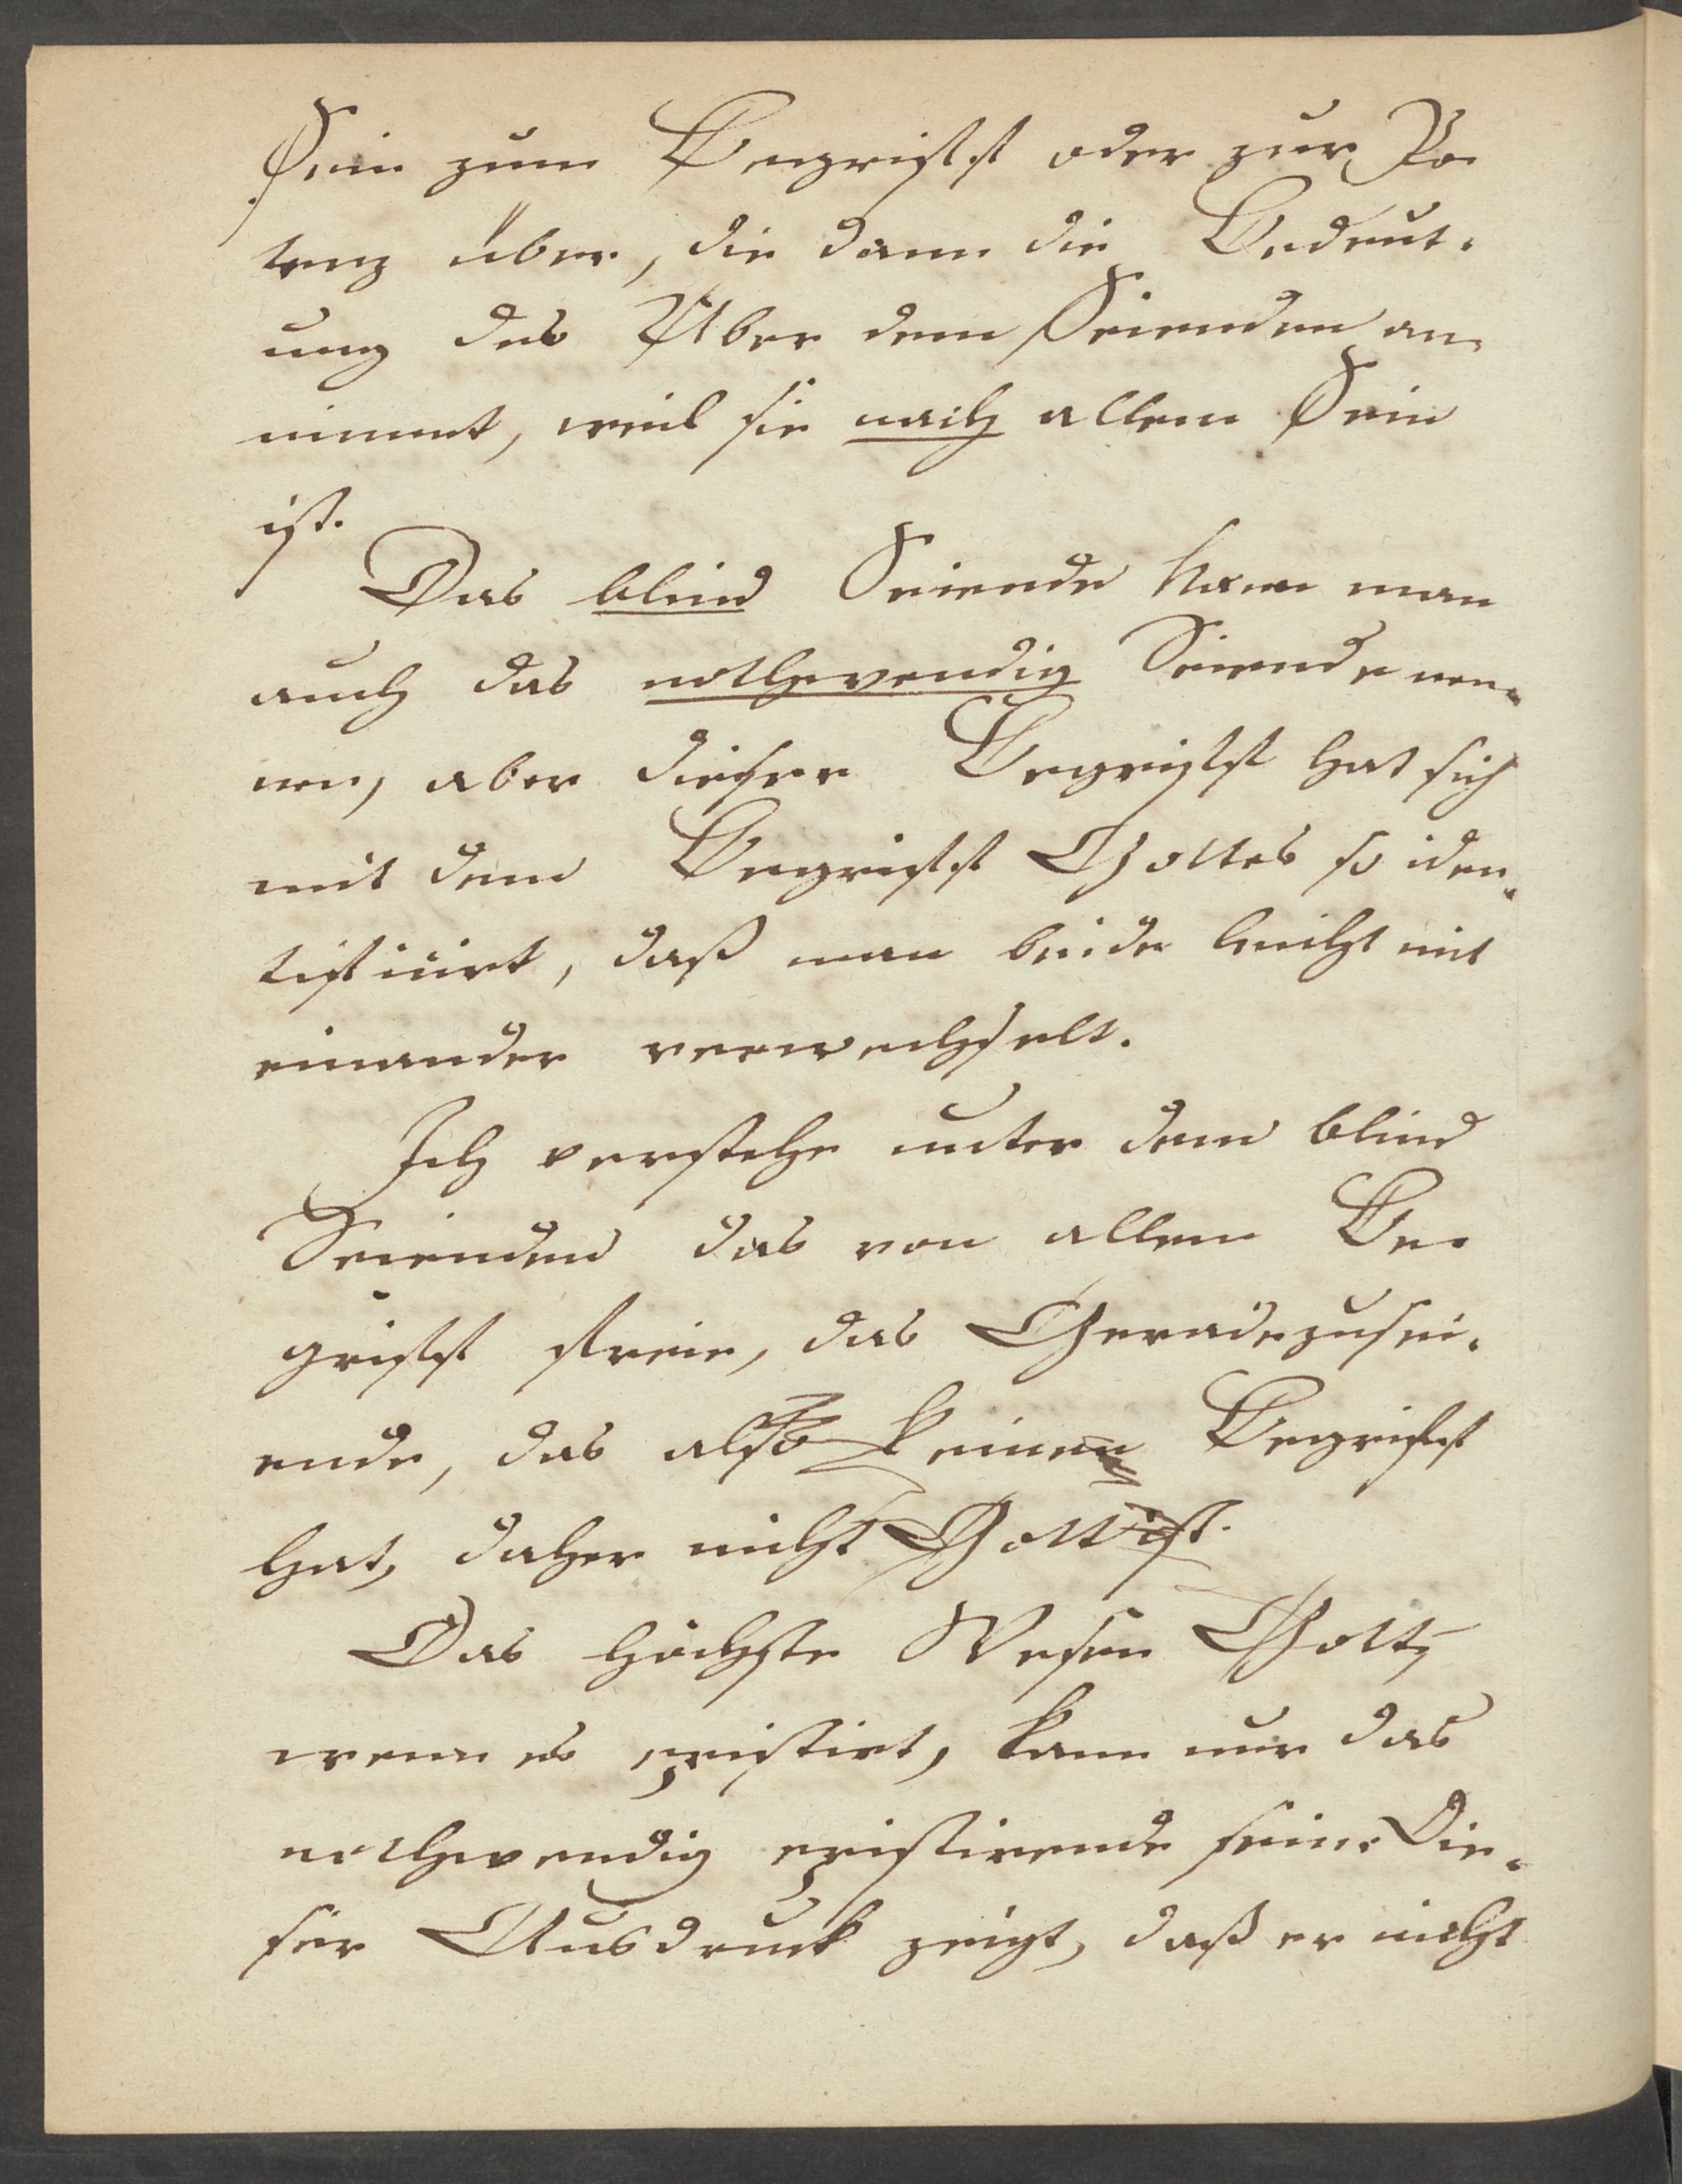 Sein zum Begriff oder zur Po-
tenz über, die dann die Bedeut-
ung des Über dem Seienden an-
nimmt, weil sie nach allem Sein
ist.
Das blind Seiende kann man
auch das nothwendig Seiende nen-
nen, aber dieser Begriff hat sich
mit dem Begriff Gottes so iden-
tificirt, daß man beide leicht mit
einander verwechselt.
Ich verstehe unter dem blind
Seienden das von allem Be-
griff freie, das Geradezusei-
ende, das also keinen Begriff
hat, daher nicht Gott ist.
Das höchste Wesen Gott,
wenn es existirt, kann nur das
nothwendig existirende sein. Die-
ser Ausdruck zeigt, daß er nicht